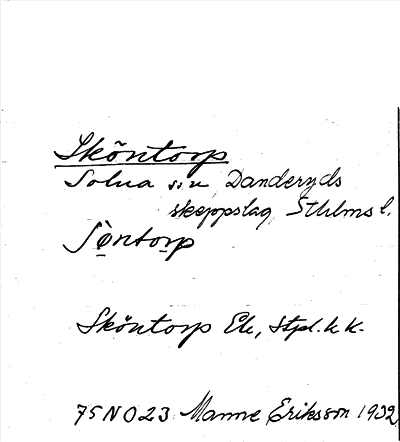 Sköntorp
Solna sn Danderyds
skeppslag Sthlms l.
Sö̀ntorp
Sköntorp Ek, Stpl. k k.
75 NO 23 Manne Eriksson 1932